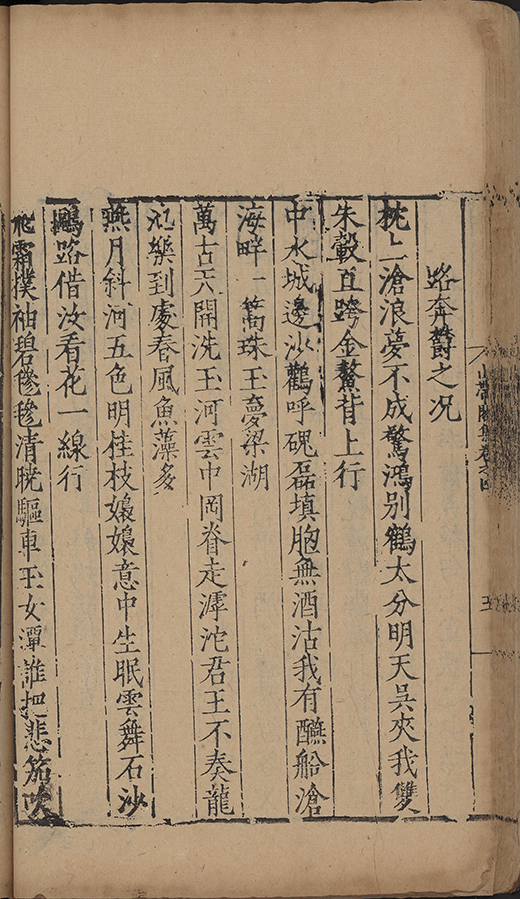 路奔欝之况
枕上滄浪夢不成驚鴻别鶴太分明天吳夾我雙
朱轂直跨金鰲背上行
中水城邊沙鸛呼磈磊填胸無酒沽我有釃船滄
海畔一篙珠玉憂梁湖
萬古天開洗玉河雲中岡脊走滹沱君王不奏龍
沱樂到處春風魚藻多
燕月斜河五色明桂枝嬝嬝意中生眠雲舞石沙
鷗路借汝看花一線行
飛霜撲袖碧毿毿清曉驅車玉女潭誰把悲笳吹
山帶閣集卷之四
五